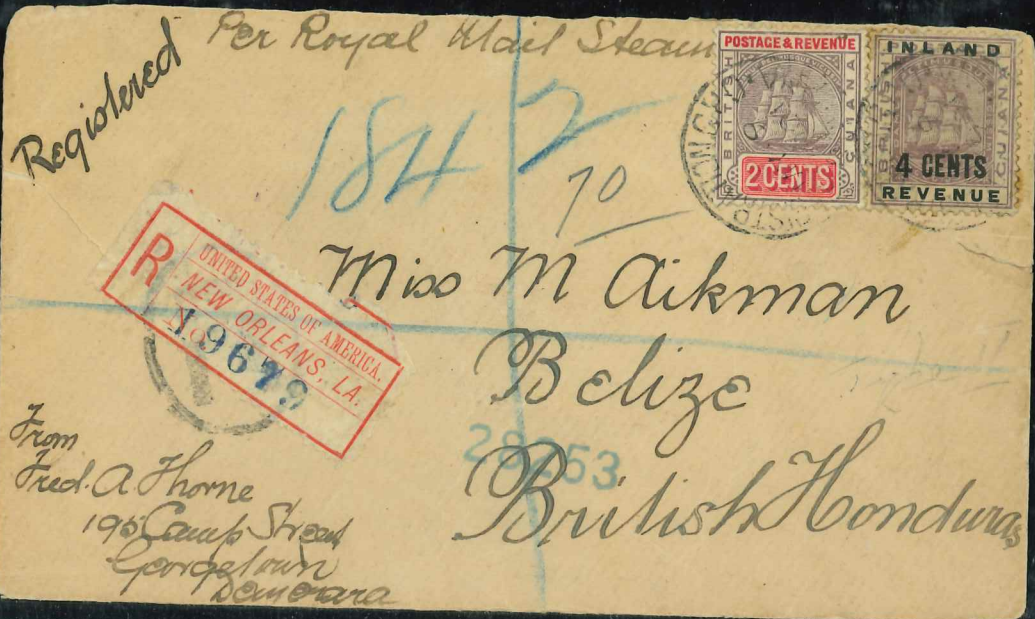 Per Royal Mail Steam
Registered
1842
70
POSTAGE & REVENUE
BRITISH
GUIANA
2 CENTS
INLAND
BRITISH
GUIANA
4 CENTS
REVENUE
R
UNITED STATES OF AMERICA.
NEW ORLEANS, LA.
No
Miss M Aikman
Belize
British Honduras
28253
From
Fred. A. Thorne
195 Camp Street
Georgetown
Demerara